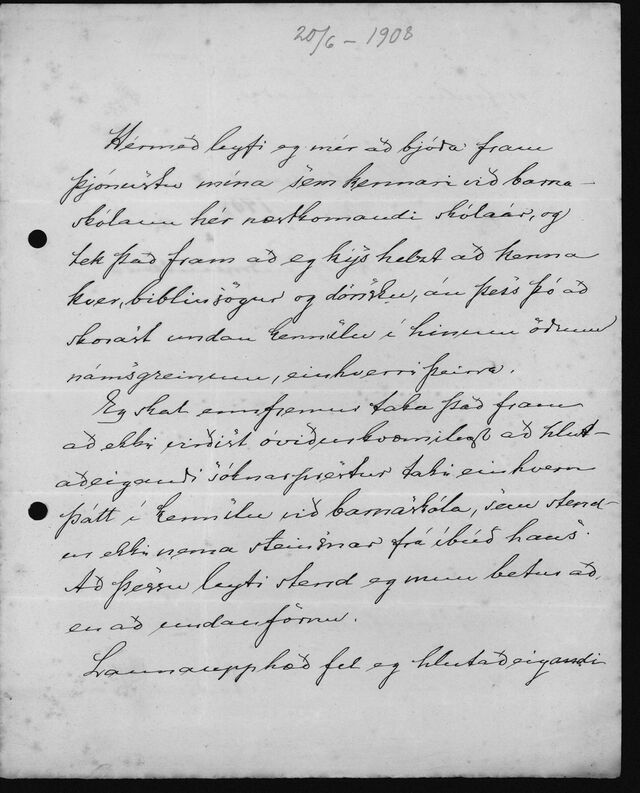 20/6 – 1908
Hérmeð leyfi eg mér að bjóða fram
þjónustu mína sem kennari við barna-
skólann hér næstkomandi skólaár, og
tek það fram að eg kýs helzt að kenna
kver, biblíusögur og dönsku, án þess þó að
skorast undan kenslu í hinum öðrum
námsgreinum, einhverri þeirra.
Eg skal ennfremur taka það fram
að ekki virðist óviðurkvæmilegt að hlut-
aðeigandi sóknarprestur taki einhvern
þátt í kenslu við barnaskóla, sem stend-
ur ekki nema steinsnar frá íbúð hans.
Að þessu leyti stend eg mun betur að
en að undanförnu.
Launaupphæð fel eg hlutaðeigandi